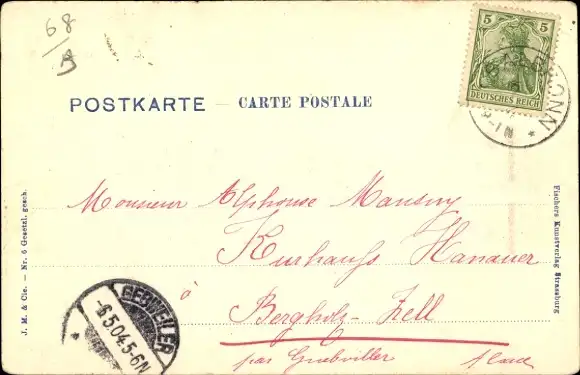 68
/
5
5 5
DEUTSCHES REICH
POSTKARTE – CARTE POSTALE
Monsieur Alphonse Mansuy
Kurhaus Hanauer
à
Bergholz-Zell
par Guebviller
GEBWEILER
-6.5.04.5-6N
J. M. & Cie. – Nr. 6 Gesetzl. gesch.
Fischers Kunstverlag Strassburg